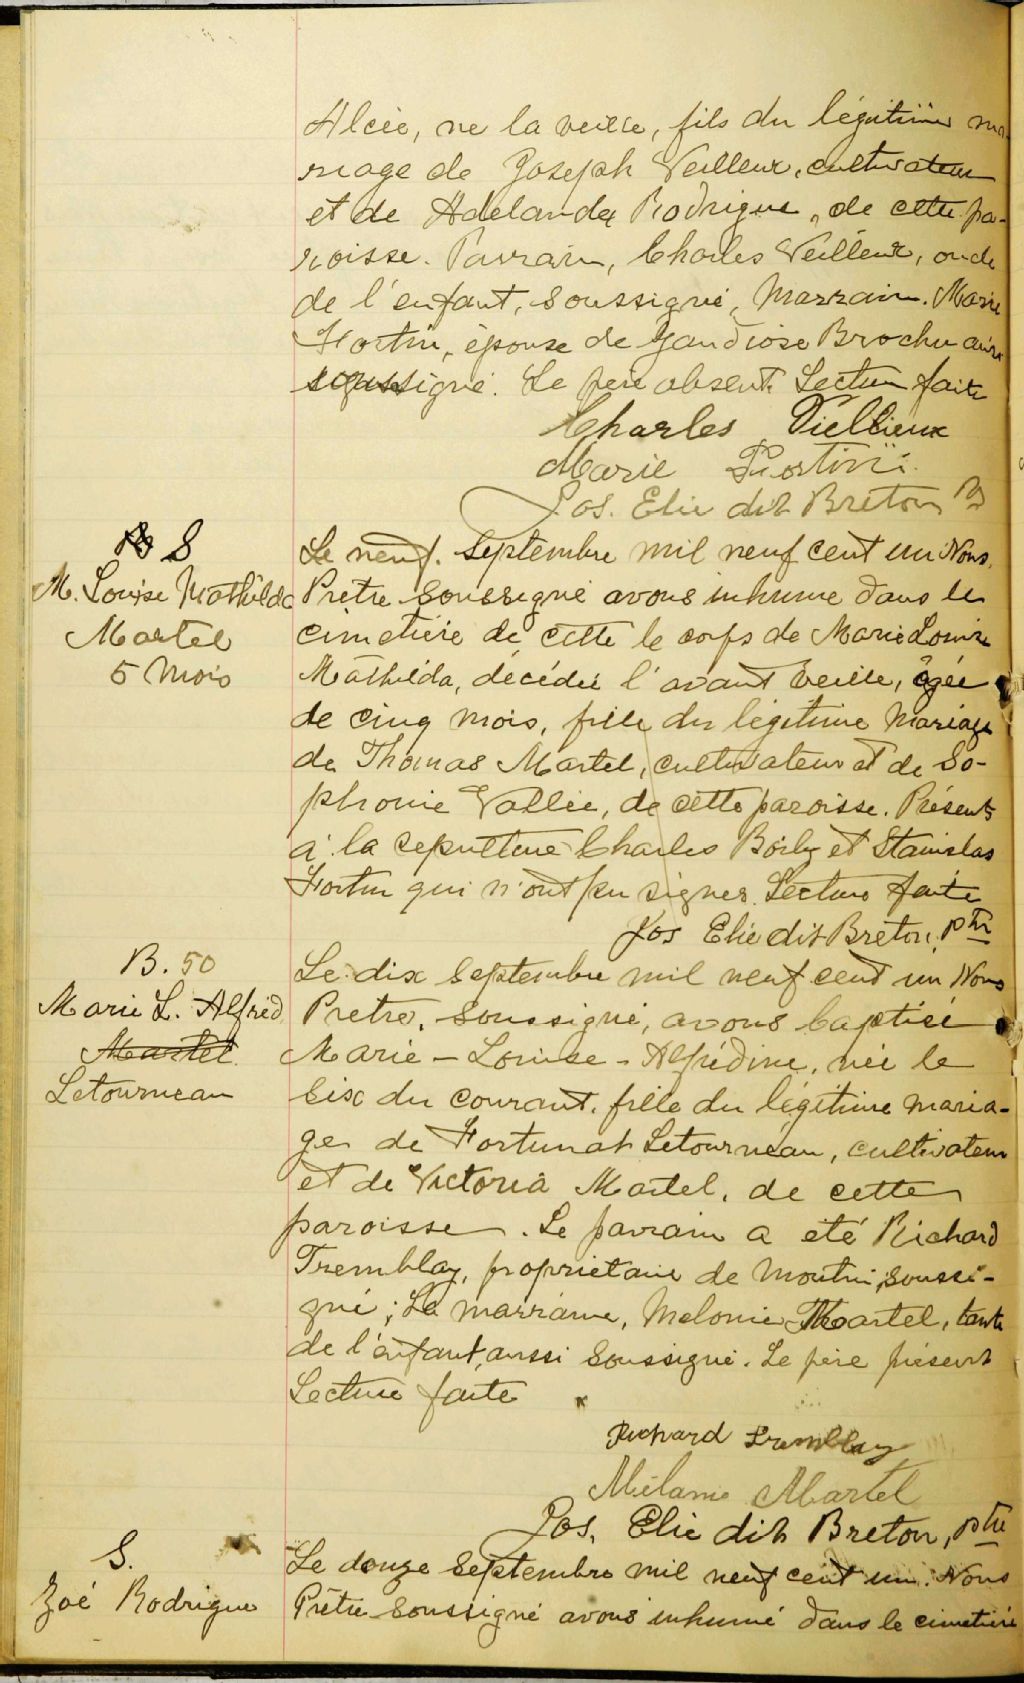 Alcée, né la veille, fils du légitime ma-
riage de Joseph Veilleux, cultivateur
et de Adelande Rodrigue, de cette pa-
roisse. Parrain, Charles Veilleux, oncle
de l'enfant, soussigné, Marraine. Marie
Fortin, épouse de Gaudiose Brochu aussi
soussigné. Le père absent. Lecture faite
Charles Viellieux
Marie Fortin
Jos. Elie dit Breton
S
M. Louise Mathilda
Martel
5 Mois
Le neuf. Septembre mil neuf cent un Nous,
Prêtre Soussigné avons inhumé dans le
cimetière de cette le corps de Marie Louise
Mathilda, décédée l'avant veille, âgée
de cinq mois, fille du légitime Mariage
de Thomas Martel, cultivateur et de So-
phronie Vallée, de cette paroisse. Présents
à la sepulture Charles Boily et Stanislas
Fortin qui n'ont pu signer. Lecture faite
Jos Elie dit Breton, ptre
B. 50
Marie L. Alfréd
Martel
Letourneau
Le dix Septembre mil neuf cent un Nous
Pretre, Soussigné, avons baptisé
Marie - Louise - Alfrédine, née le
six du courant, fille du légitime maria-
ge de Fortunat Letourneau, cultivateur
et de Victoria Martel, de cette
paroisse. Le parrain a été Richard
Tremblay, propriétaire de Moulin, soussi-
gné; La marraine, Melonie Martel, tante
de l'enfant, aussi Soussigné. Le père présent
Lecture faite
Richard Tremblay
Mélanie Martel
Jos. Elie dit Breton, ptre
S.
Zoé Rodrigue
Le douze Septembre mil neuf cent un. Nous
Prêtre Soussigné avons inhumé dans le cimetière